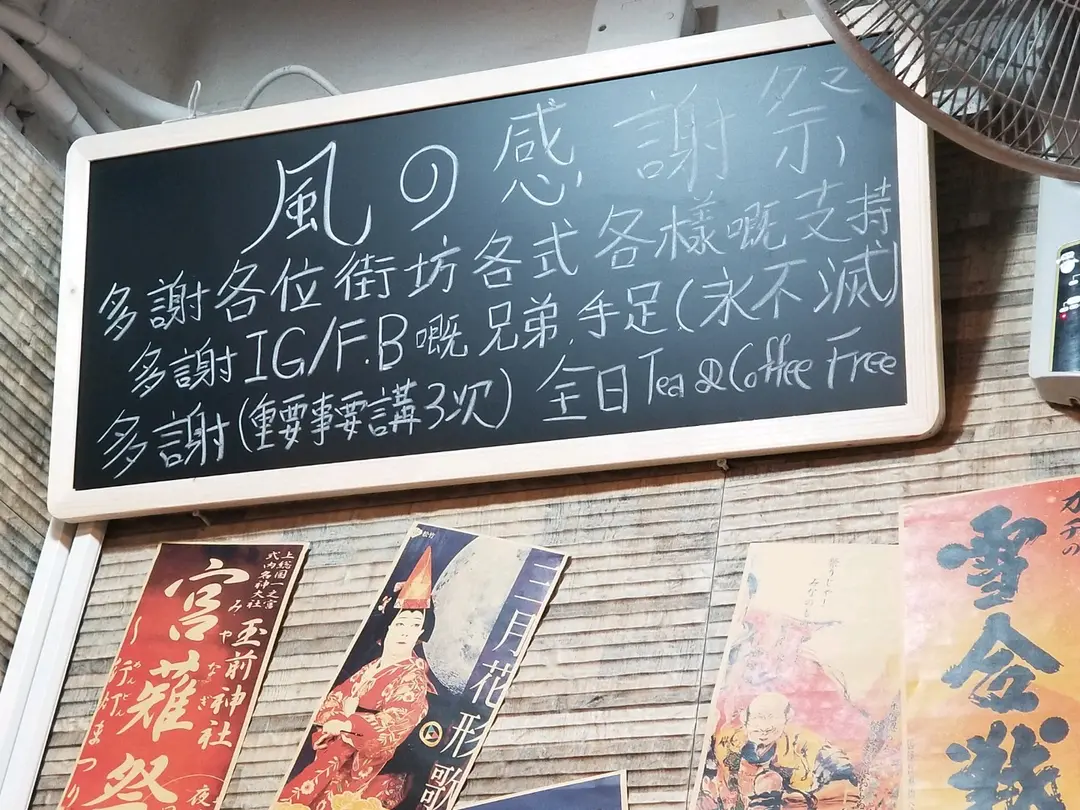 風の感謝祭
多謝各位街坊各式各樣嘅支持
多謝IG/F.B嘅兄弟.手足(永不滅)
多謝(重要事要講3次) 全日Tea & Coffee Free
上総国一之宮
式内名神大社
玉前神社
宮薙祭
みやなぎ
～行灯まつり
あんどん
夜
松竹
三月花形歌
雪合戦